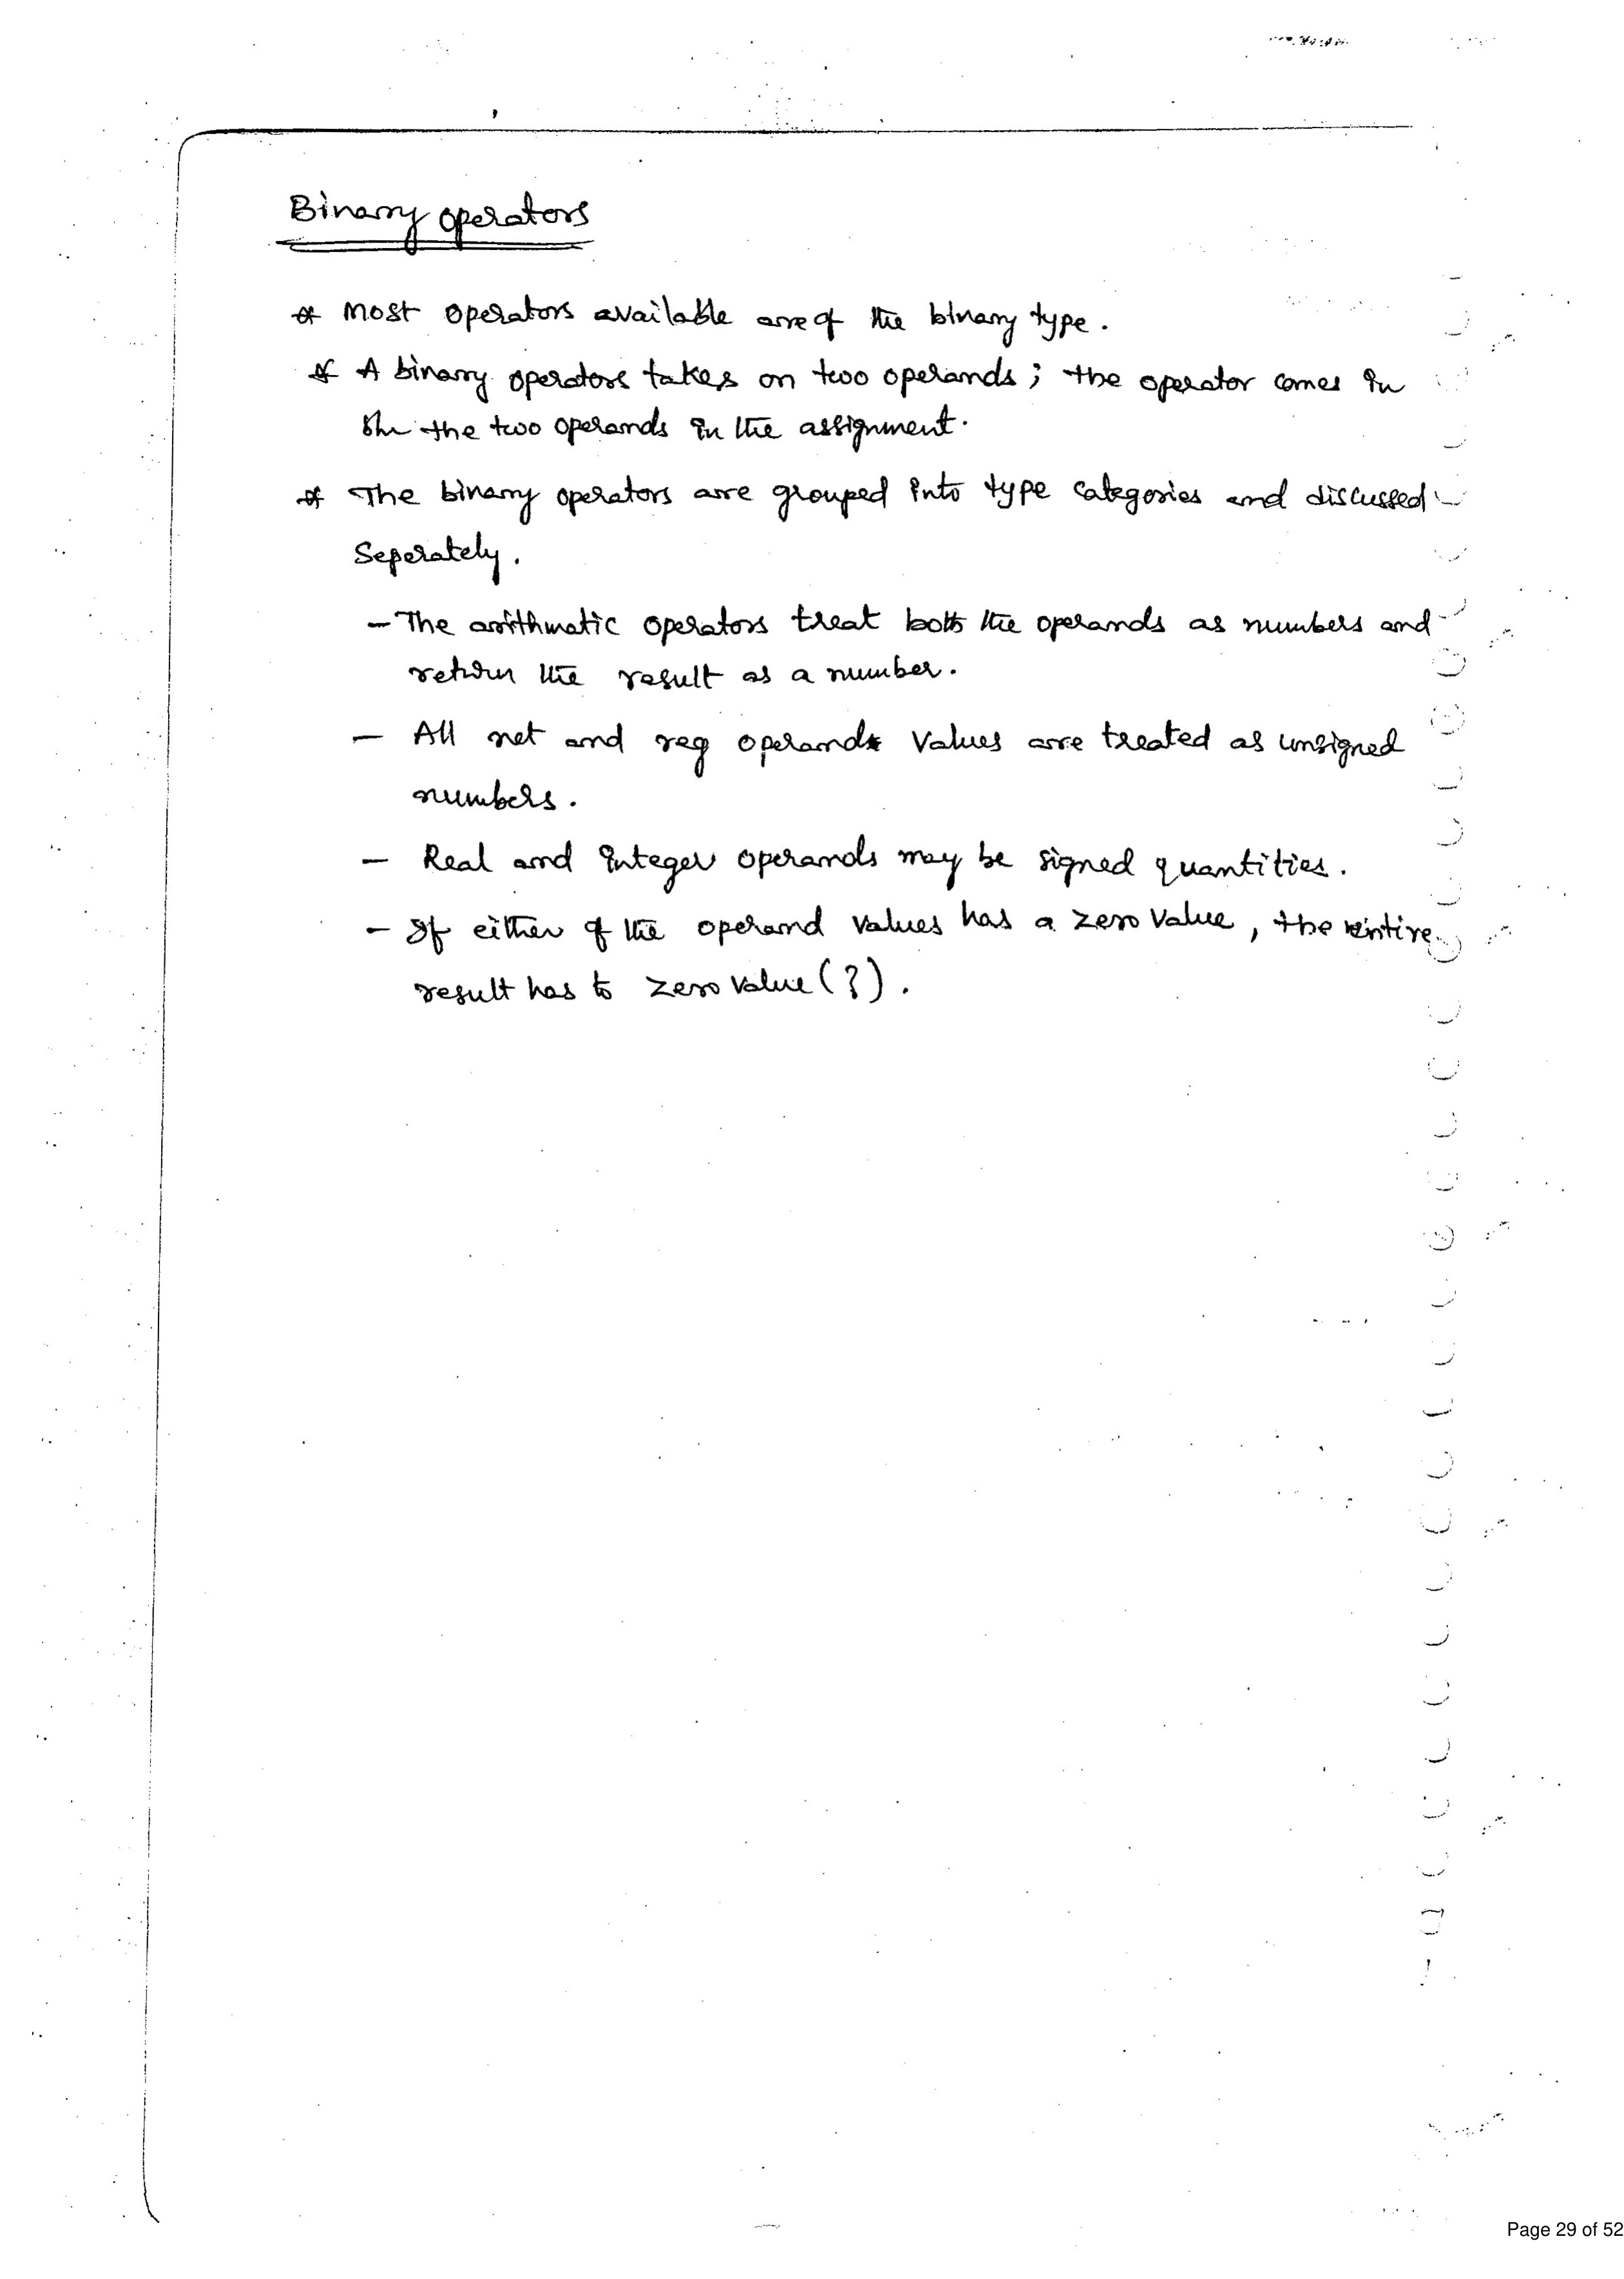 Binary operators
* Most operators available are of the binary type.
* A binary operators takes on two operands; the operator comes in
b/n the two operands in the assignment.
* The binary operators are grouped into type categories and discussed
Seperately.
- The arithmatic operators treat both the operands as numbers and
return the result as a number.
- All net and reg operands Values are treated as unsigned
numbers.
- Real and Integer operands may be signed quantities.
- If either of the operand values has a zero value, the entire
result has to zero value (?).
Page 29 of 52